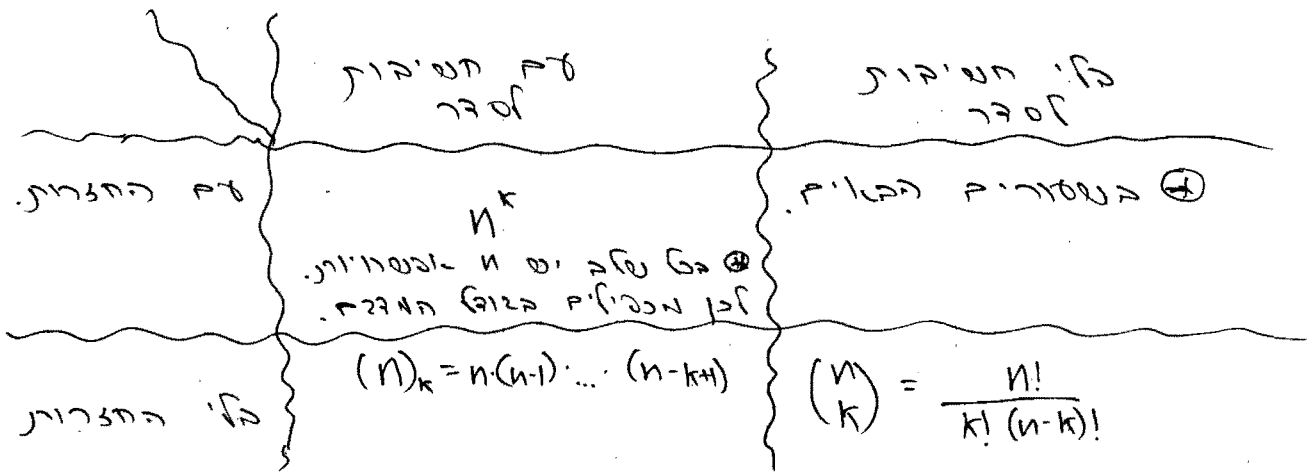 עם חשיבות
לסדר
בלי חשיבות
לסדר
עם החזרות.
n^k
⊛ בכל שלב יש n אפשרויות.
לכן מכפילים בגודל המדגם.
⊛ בשעורים הבאים.
בלי החזרות
(n)_k = n·(n-1)·...·(n-k+1)
(n k) = n! / k! (n-k)!